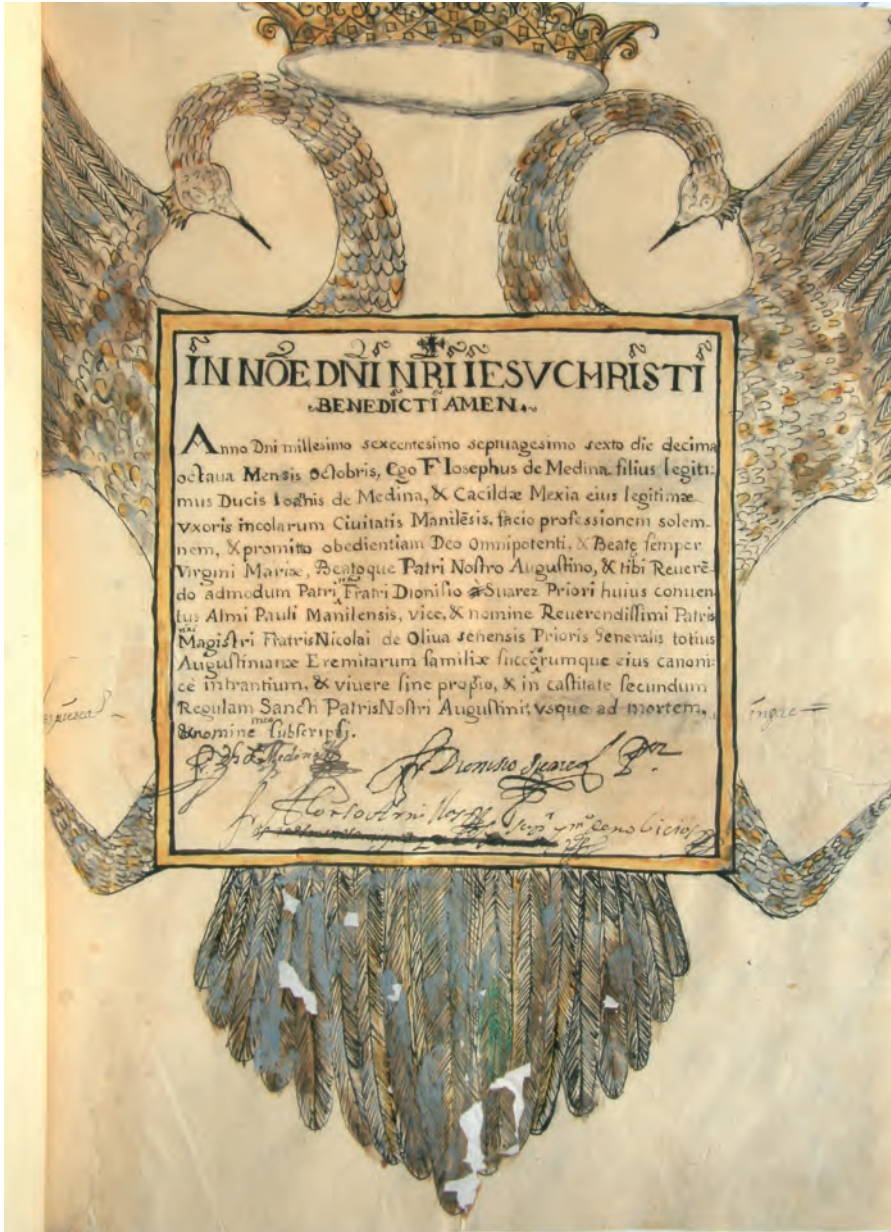 IN NOE DNI NRI IESV CHRISTI
BENEDICTI AMEN.
Anno Dni millesimo sexcentesimo septuagesimo sexto die decima
octaua Mensis Octobris, Ego F Iosephus de Medina filius legiti-
mus Ducis Ioãnis de Medina, & Cacildæ Mexia eius legitimæ
vxoris incolarum Ciuitatis Manilẽsis, facio professionem solem-
nem, & promitto obedientiam Deo Omnipotenti, & Beatę semper
Virgini Mariæ, Beatoque Patri Nostro Augustino, & tibi Reuerẽ-
do admodum Patri Fratri Dionisio à Suarez Priori huius conuen-
tus Almi Pauli Manilensis, vice, & nomine Reuerendissimi Patris
Magistri Fratris Nicolai de Oliua senensis Prioris Generalis totius
Augustinianæ Eremitarum familiæ succerumque eius canoni-
cè intrantium, & viuere sine propio, & in castitate secundum
Regulam Sancti Patris Nostri Augustini, vsque ad mortem,
& nomine meo subscripsi.
de Medina
Dionisio Suarez Por